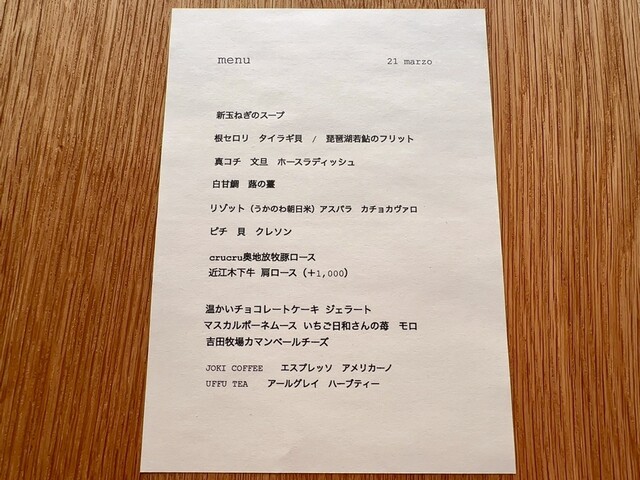 menu 21 marzo
新玉ねぎのスープ
根セロリ タイラギ貝 / 琵琶湖若鮎のフリット
真コチ 文旦 ホースラディッシュ
白甘鯛 蕗の薹
リゾット（うかのわ朝日米）アスパラ カチョカヴァロ
ピチ 貝 クレソン
crucru奥地放牧豚ロース
近江木下牛 肩ロース（＋1,000）
温かいチョコレートケーキ ジェラート
マスカルポーネムース いちご日和さんの苺 モロ
吉田牧場カマンベールチーズ
JOKI COFFEE エスプレッソ アメリカーノ
UFFU TEA アールグレイ ハーブティー